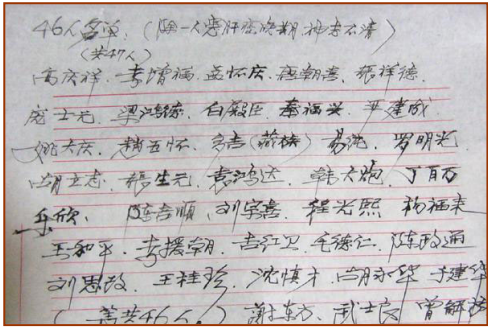 46人名单，(除一人患肝癌晚期，神志不清)
(共47人)
高庆祥．李增福．孟怀庆．赵朝喜．张祥德．
庞士元．梁鸿锦．白殿臣．秦福兴．尹建成
姚大庆．赵玉怀．多吉(藏族)．易沈．罗明光
胡立志．杨生元．袁鸿达．韩大炮．丁百万
乐欣．陈吉顺．刘字喜．程光熙．杨福来
王和平．李援朝．吉红卫．毛德仁．陈政通
刘思政．王桂珍．沈慎才．胡永华．于建华
(共46人！) 谢东方．武士良．曾解放